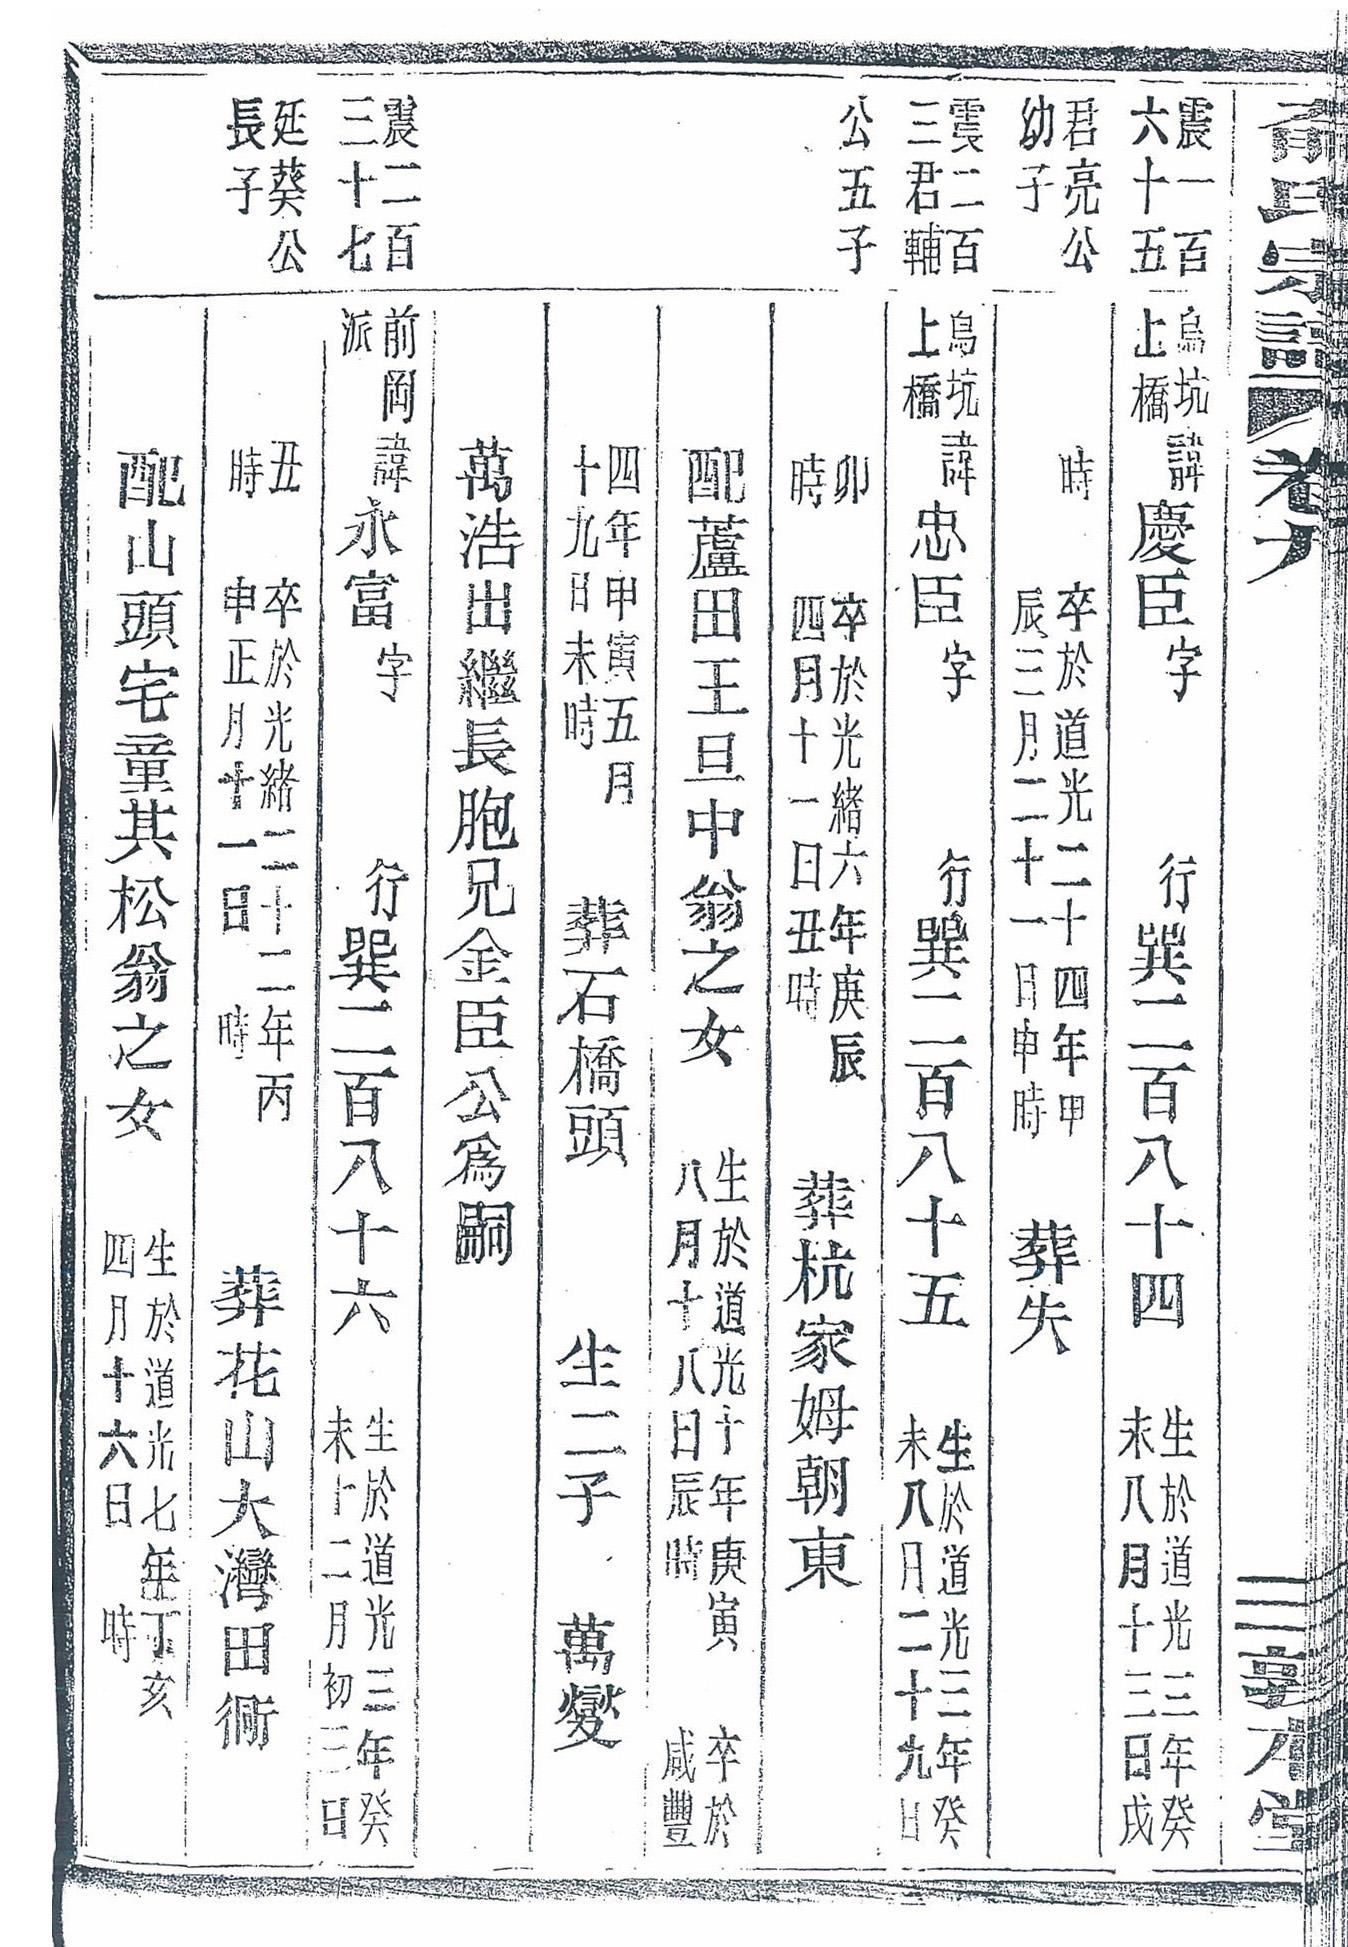 俞氏宗譜 卷六 三 敦本堂
震一百
六十五
君亮公
幼子
烏坑
上橋
諱慶臣 字 行巽二百八十四 生於道光三年癸
未八月十三日戌
時 卒於道光二十四年甲
辰三月二十一日申時 葬失
震二百
三君輔
公五子
烏坑
上橋
諱忠臣 字 行巽二百八十五 生於道光三年癸
未八月二十九日
卯
時 卒於光緒六年庚辰
四月十一日丑時 葬杭家姆朝東
配蘆田王旦中翁之女 生於道光十年庚寅
八月十八日辰時 卒於
咸豐
四年甲寅五月
十九日未時 葬石橋頭 生二子 萬燮
萬浩出繼長胞兄金臣公為嗣
震二百
三十七
延葵公
長子
前岡
派
諱永富 字 行巽二百八十六 生於道光三年癸
未十二月初三日
丑
時 卒於光緒二十二年丙
申正月十一日 時 葬花山大灣田衕
配山頭宅童其松翁之女 生於道光七年丁亥
四月十六日 時